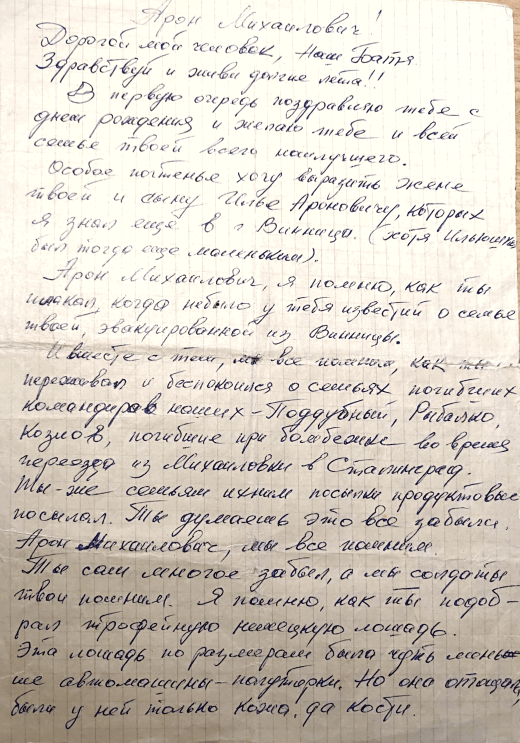 Арон Михайлович!
Дорогой мой человек, Наш Батя
Здравствуй и живи долгие лета!!
В первую очередь поздравляю тебя с
днем рождения и желаю тебе и всей
семье твоей всего наилучшего.
Особое почтенье хочу выразить жене
твоей и сыну Илье Ароновичу, которых
я знал ещё в г Винница. (хотя Ильюшка
был тогда еще маленьким).
Арон Михаилович, я помню, как ты
плакал, когда небыло у тебя известий о семье
твоей, эвакуированной из Винницы.
И вместе с тем, мы все помним, как ты
переживал и беспокоился о семьях погибших
командиров наших - Поддубный, Рыбалко,
Козлов, погибшие при бомбежке во время
переезда из Михаиловки в Сталинград.
Ты-же семьям ихним посылки продуктовые
посылал. Ты думаешь это все забыли.
Арон Михаилович, мы все помним.
Ты сам многое забыл, а мы солдаты
твои помним. Я помню, как ты подоб-
рал трофейную немецкую лошадь.
Эта лошадь по размерам была чуть мень-
ше автомашины - полуторки. Но она отощала,
были у ней только кожа, да кости.